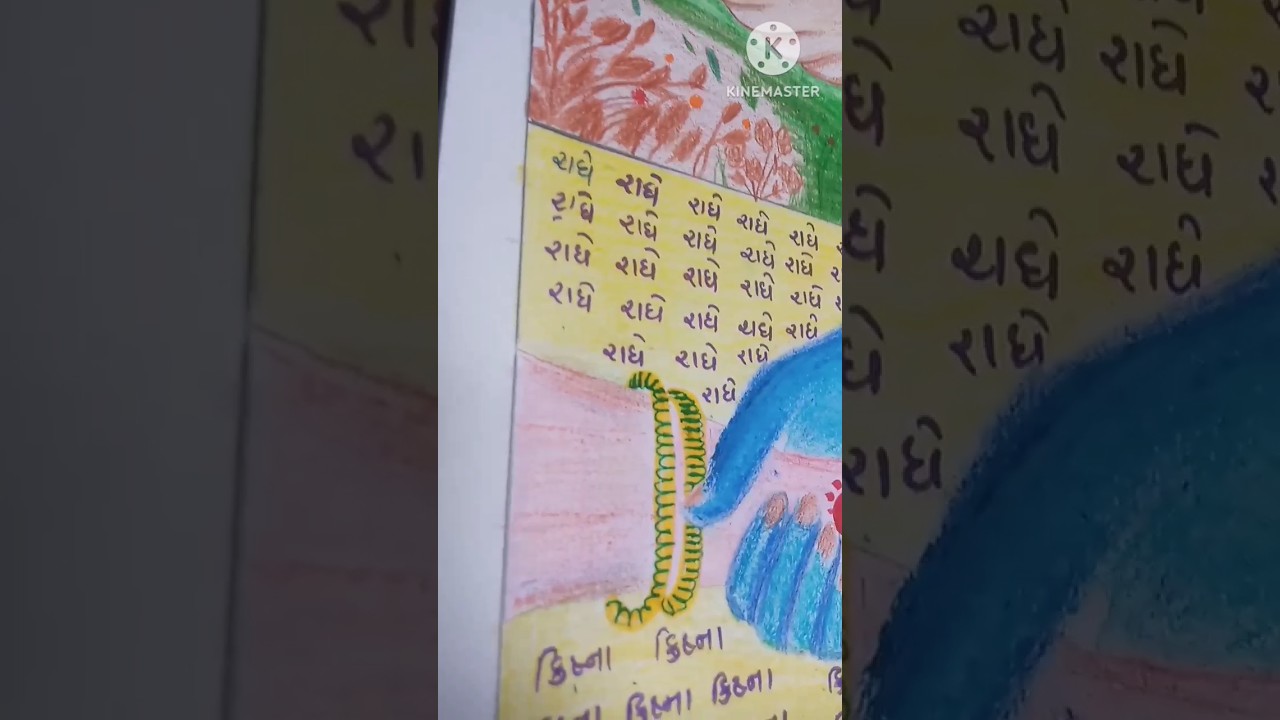 KINEMASTER
રાધે રાધે રાધે રાધે રાધે
રાધે રાધે રાધે રાધે રાધે
રાધે રાધે રાધે રાધે રાધે
રાધે રાધે રાધે રાધે રાધે
રાધે રાધે રાધે
રાધે
ક્રિષ્ના ક્રિષ્ના
ક્રિષ્ના ક્રિષ્ના